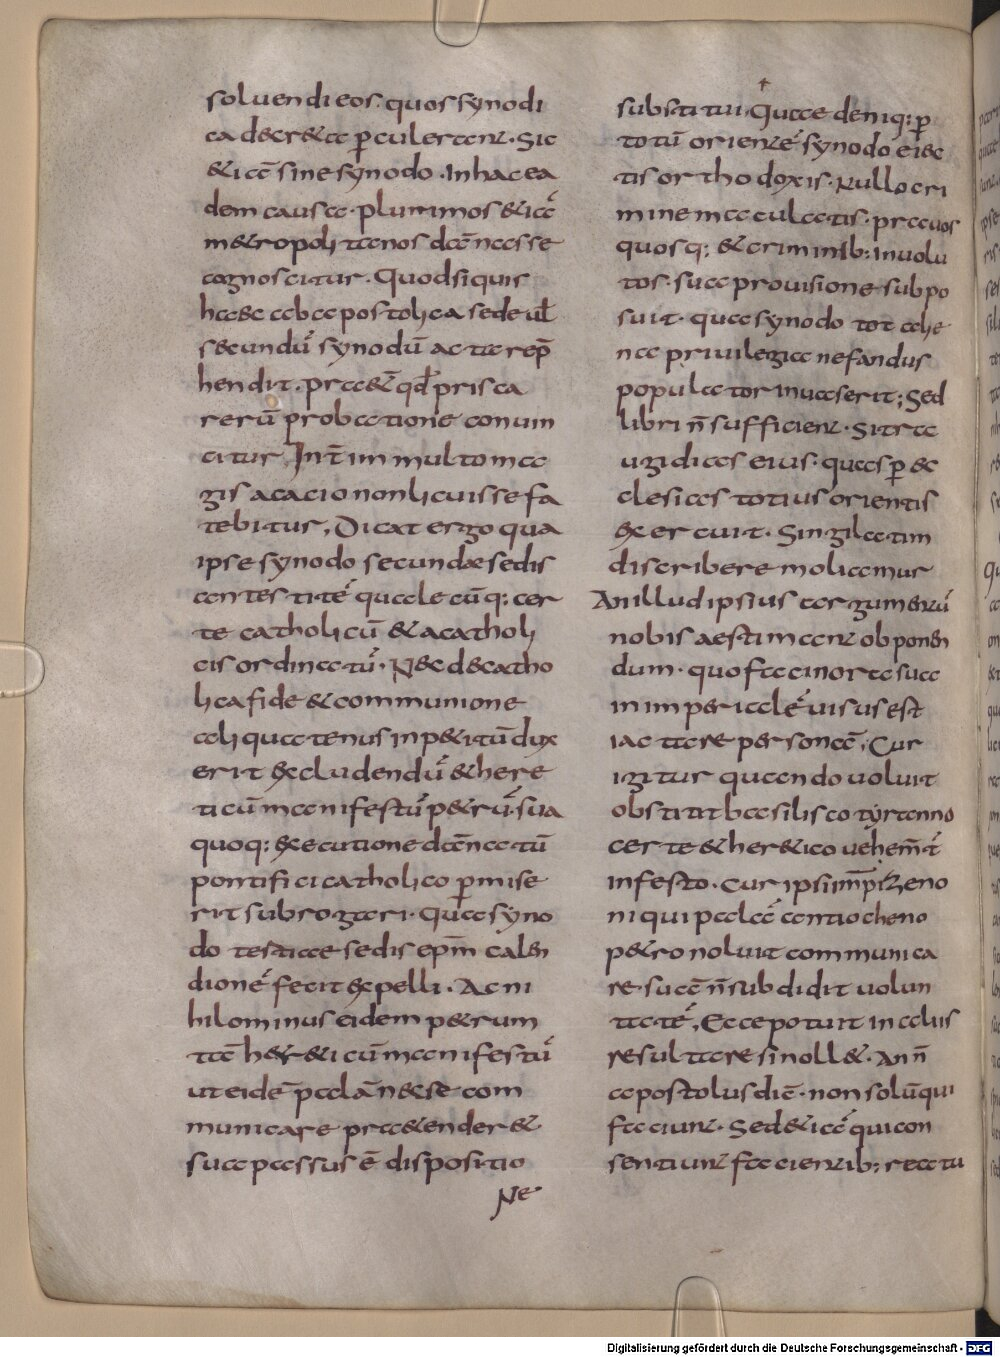 soluendi eos. quos synodi
ca decreta p̲culerant. Sic
& iā sine synodo. In hac ea
dem causa. plurimos & iā
m&ropolitanos dānasse
cognoscitur. Quod si quis
haec ab apostolica sede ul̄
secundū synodū acta rep̄
hendit. praet̄ qđ prisca
rerū probatione conuin
citur, In t̄im multo ma
gis acacio non licuisse fa
tebitur, Dicat ergo qua
ipse synodo secundae sedis
antestitē qualecūq; cer
te catholicū & a catholi
cis ordinatū. Nec de catho
lica fide & communione
aliquatenus inp&itū dux
erit excludendū & here
ticū manifestū p&rū. sua
quoq; executione dānatū
pontifici catholico p̲mise
rit subrogari. qua syno
do tertiae sedis epm̄ calen
dionē fecit expelli. Ac ni
hilominus eidem p&rum
tā her&icū manifestū
ut eidē palā n& se com
municare pra&ender&.
sua passus ē dispositio
Ne
substitui. Quae deniq; p̲
totū orientē synodo eiec
tis orthodoxis. Nullo cri
mine maculatis. prauos
quosq; & criminib; inuolu
tos. sua prouisione subpo
suit. qua synodo tot alie
na priuilegia nefandus
populator inuaserit; Sed
libri n̄ sufficient. Si tra
ugidias eius. quas p̲ ec
clesias totius orientis
exercuit. Singilatim
discribere moliamur
An illud ipsius argumentū
nobis aestimant obponen
dum. quo facinora sua
in imperialē uisus est
iactare personā, Cur
igitur quando uoluit
obstitit basilisco tyranno
certe & her&ico uehem̄t̄
infesto. Cur ipsi imp̄r̄ zeno
ni qui palā antiocheno
p&ro noluit communica
re. suā n̄ subdidit uolun
tatē, Ecce potuit in aliis
resultare si noll&. An n̄
apostolus dic̄. non solū qui
faciunt. Sed & iā qui con
sentiunt facientib; reatu